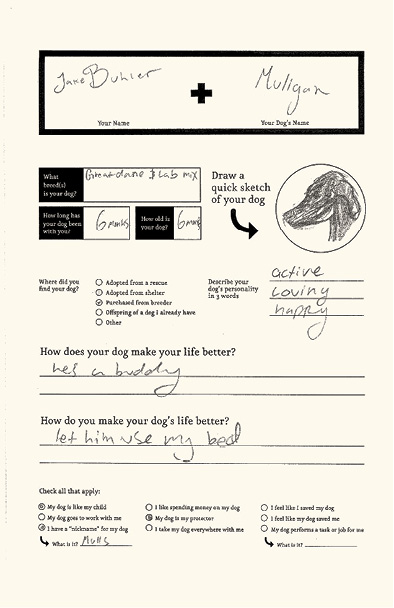 Jane Buhler + Muligan
Your Name Your Dog's Name
What breed(s) is your dog? Great dane & Lab mix
Draw a quick sketch of your dog
How long has your dog been with you? 6 months
How old is your dog? 6 months
Where did you find your dog?
Adopted from a rescue
Adopted from shelter
Purchased from breeder
Offspring of a dog I already have
Other
Describe your dog's personality in 3 words
active
loving
happy
How does your dog make your life better?
hes a buddy
How do you make your dog's life better?
let him use my bed
Check all that apply:
My dog is like my child
My dog goes to work with me
I have a "nickname" for my dog
What is it? Mulls
I like spending money on my dog
My dog is my protector
I take my dog everywhere with me
I feel like I saved my dog
I feel like my dog saved me
My dog performs a task or job for me
What is it?